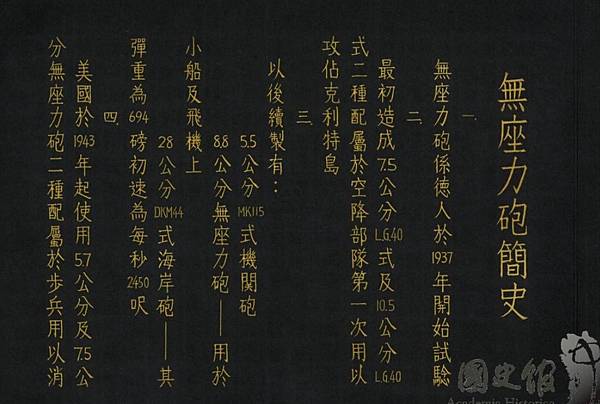 無座力砲簡史
一.
無座力砲係德人於1937年開始試驗
二.
最初造成7.5公分L.G.40式及10.5公分L.G.40
式二種配屬於空降部隊第一次用以
攻佔克利特島
三.
以後續製有：
5.5公分MK115式機關砲
8.8公分無座力砲——用於
小船及飛機上
28公分DKM44式海岸砲——其
彈重為694磅初速為每秒2450呎
四.
美國於1943年起使用5.7公分及7.5公
分無座力砲二種配屬於步兵用以消
國史館
Academia Historica